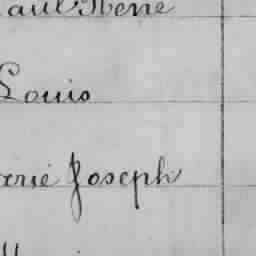 aul René
Louis
rrie Joseph